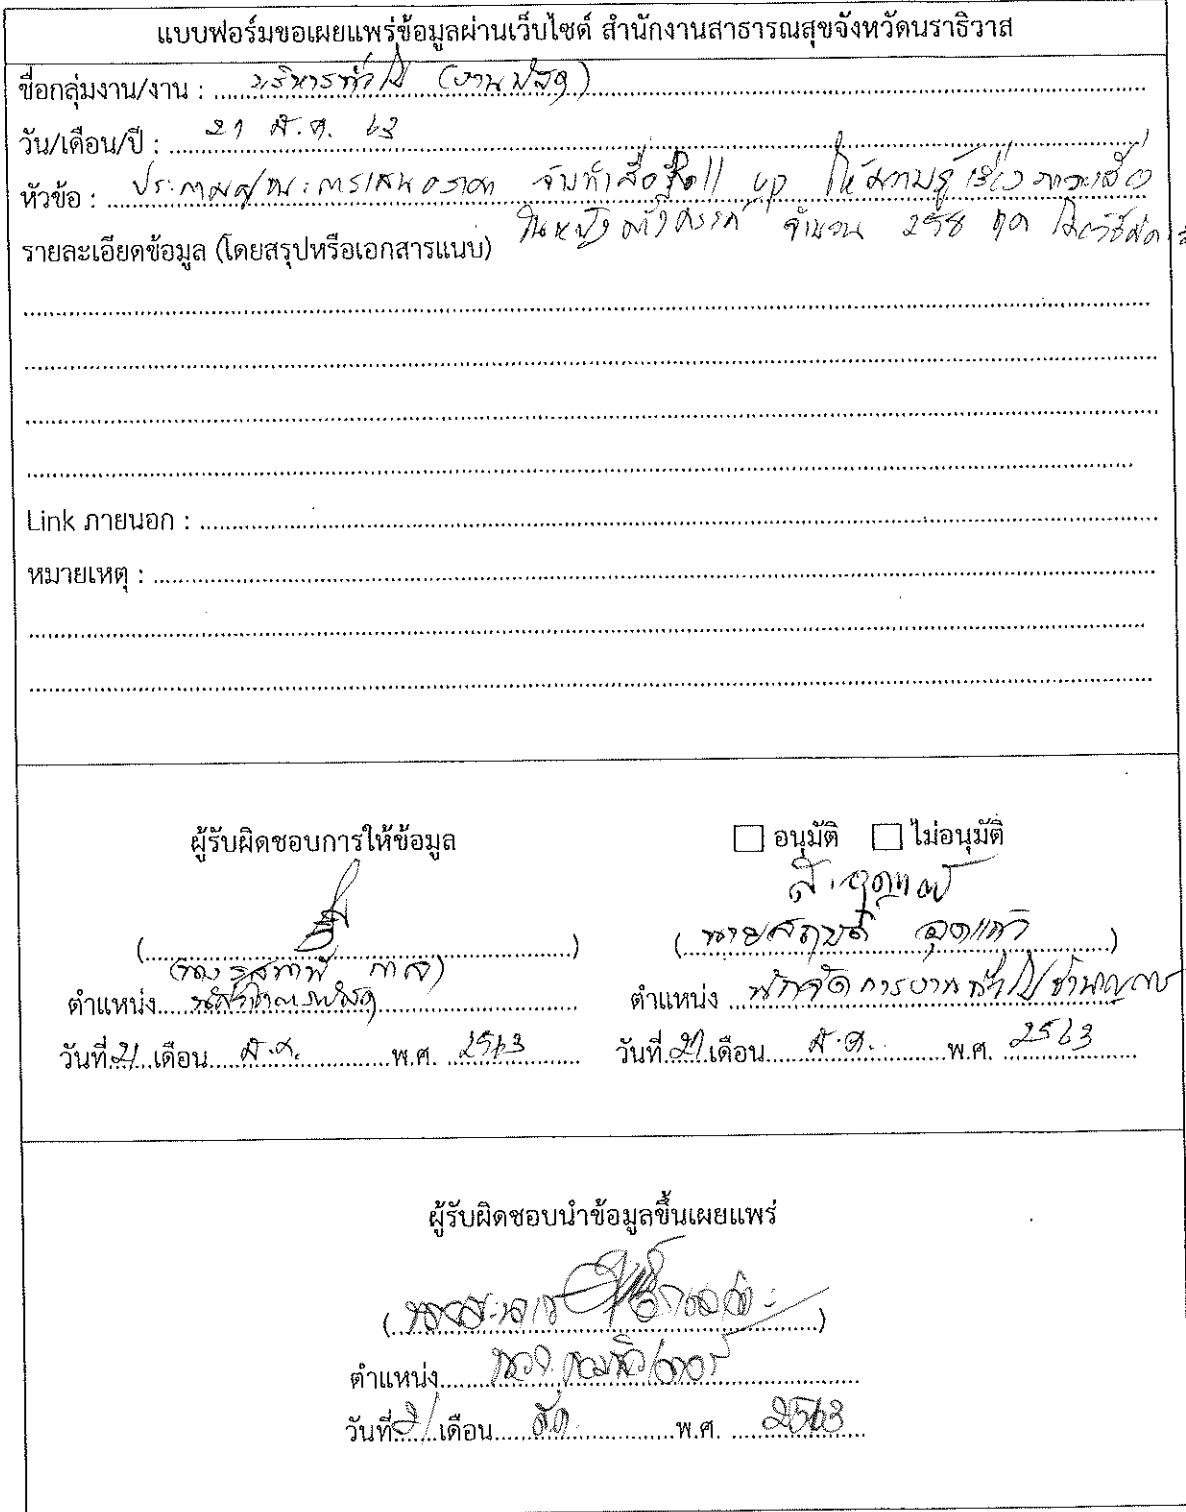 แบบฟอร์มขอเผยแพร่ข้อมูลผ่านเว็บไซต์ สำนักงานสาธารณสุขจังหวัดนราธิวาส
ชื่อกลุ่มงาน/งาน : บริหารทั่วไป (งานพัสดุ)
วัน/เดือน/ปี : 21 ส.ค. 63
หัวข้อ : ประกาศผู้ชนะการเสนอราคา จ้างทำสื่อ Roll up ให้ความรู้เรื่องภาวะเสี่ยง
ในหญิงตั้งครรภ์ จำนวน 258 ชุด โดยวิธี
รายละเอียดข้อมูล (โดยสรุปหรือเอกสารแนบ)
Link ภายนอก :
หมายเหตุ :
ผู้รับผิดชอบการให้ข้อมูล
☐ อนุมัติ ☐ ไม่อนุมัติ
ตำแหน่ง นักวิชาการพัสดุ
(นายสฤษดิ์ อุดแก้ว)
ตำแหน่ง นักจัดการงานทั่วไปชำนาญการ
วันที่ 21 เดือน ส.ค. พ.ศ. 2563
วันที่ 21 เดือน ส.ค. พ.ศ. 2563
ผู้รับผิดชอบนำข้อมูลขึ้นเผยแพร่
ตำแหน่ง นวก.คอมพิวเตอร์
วันที่ 21 เดือน ส.ค. พ.ศ. 2563